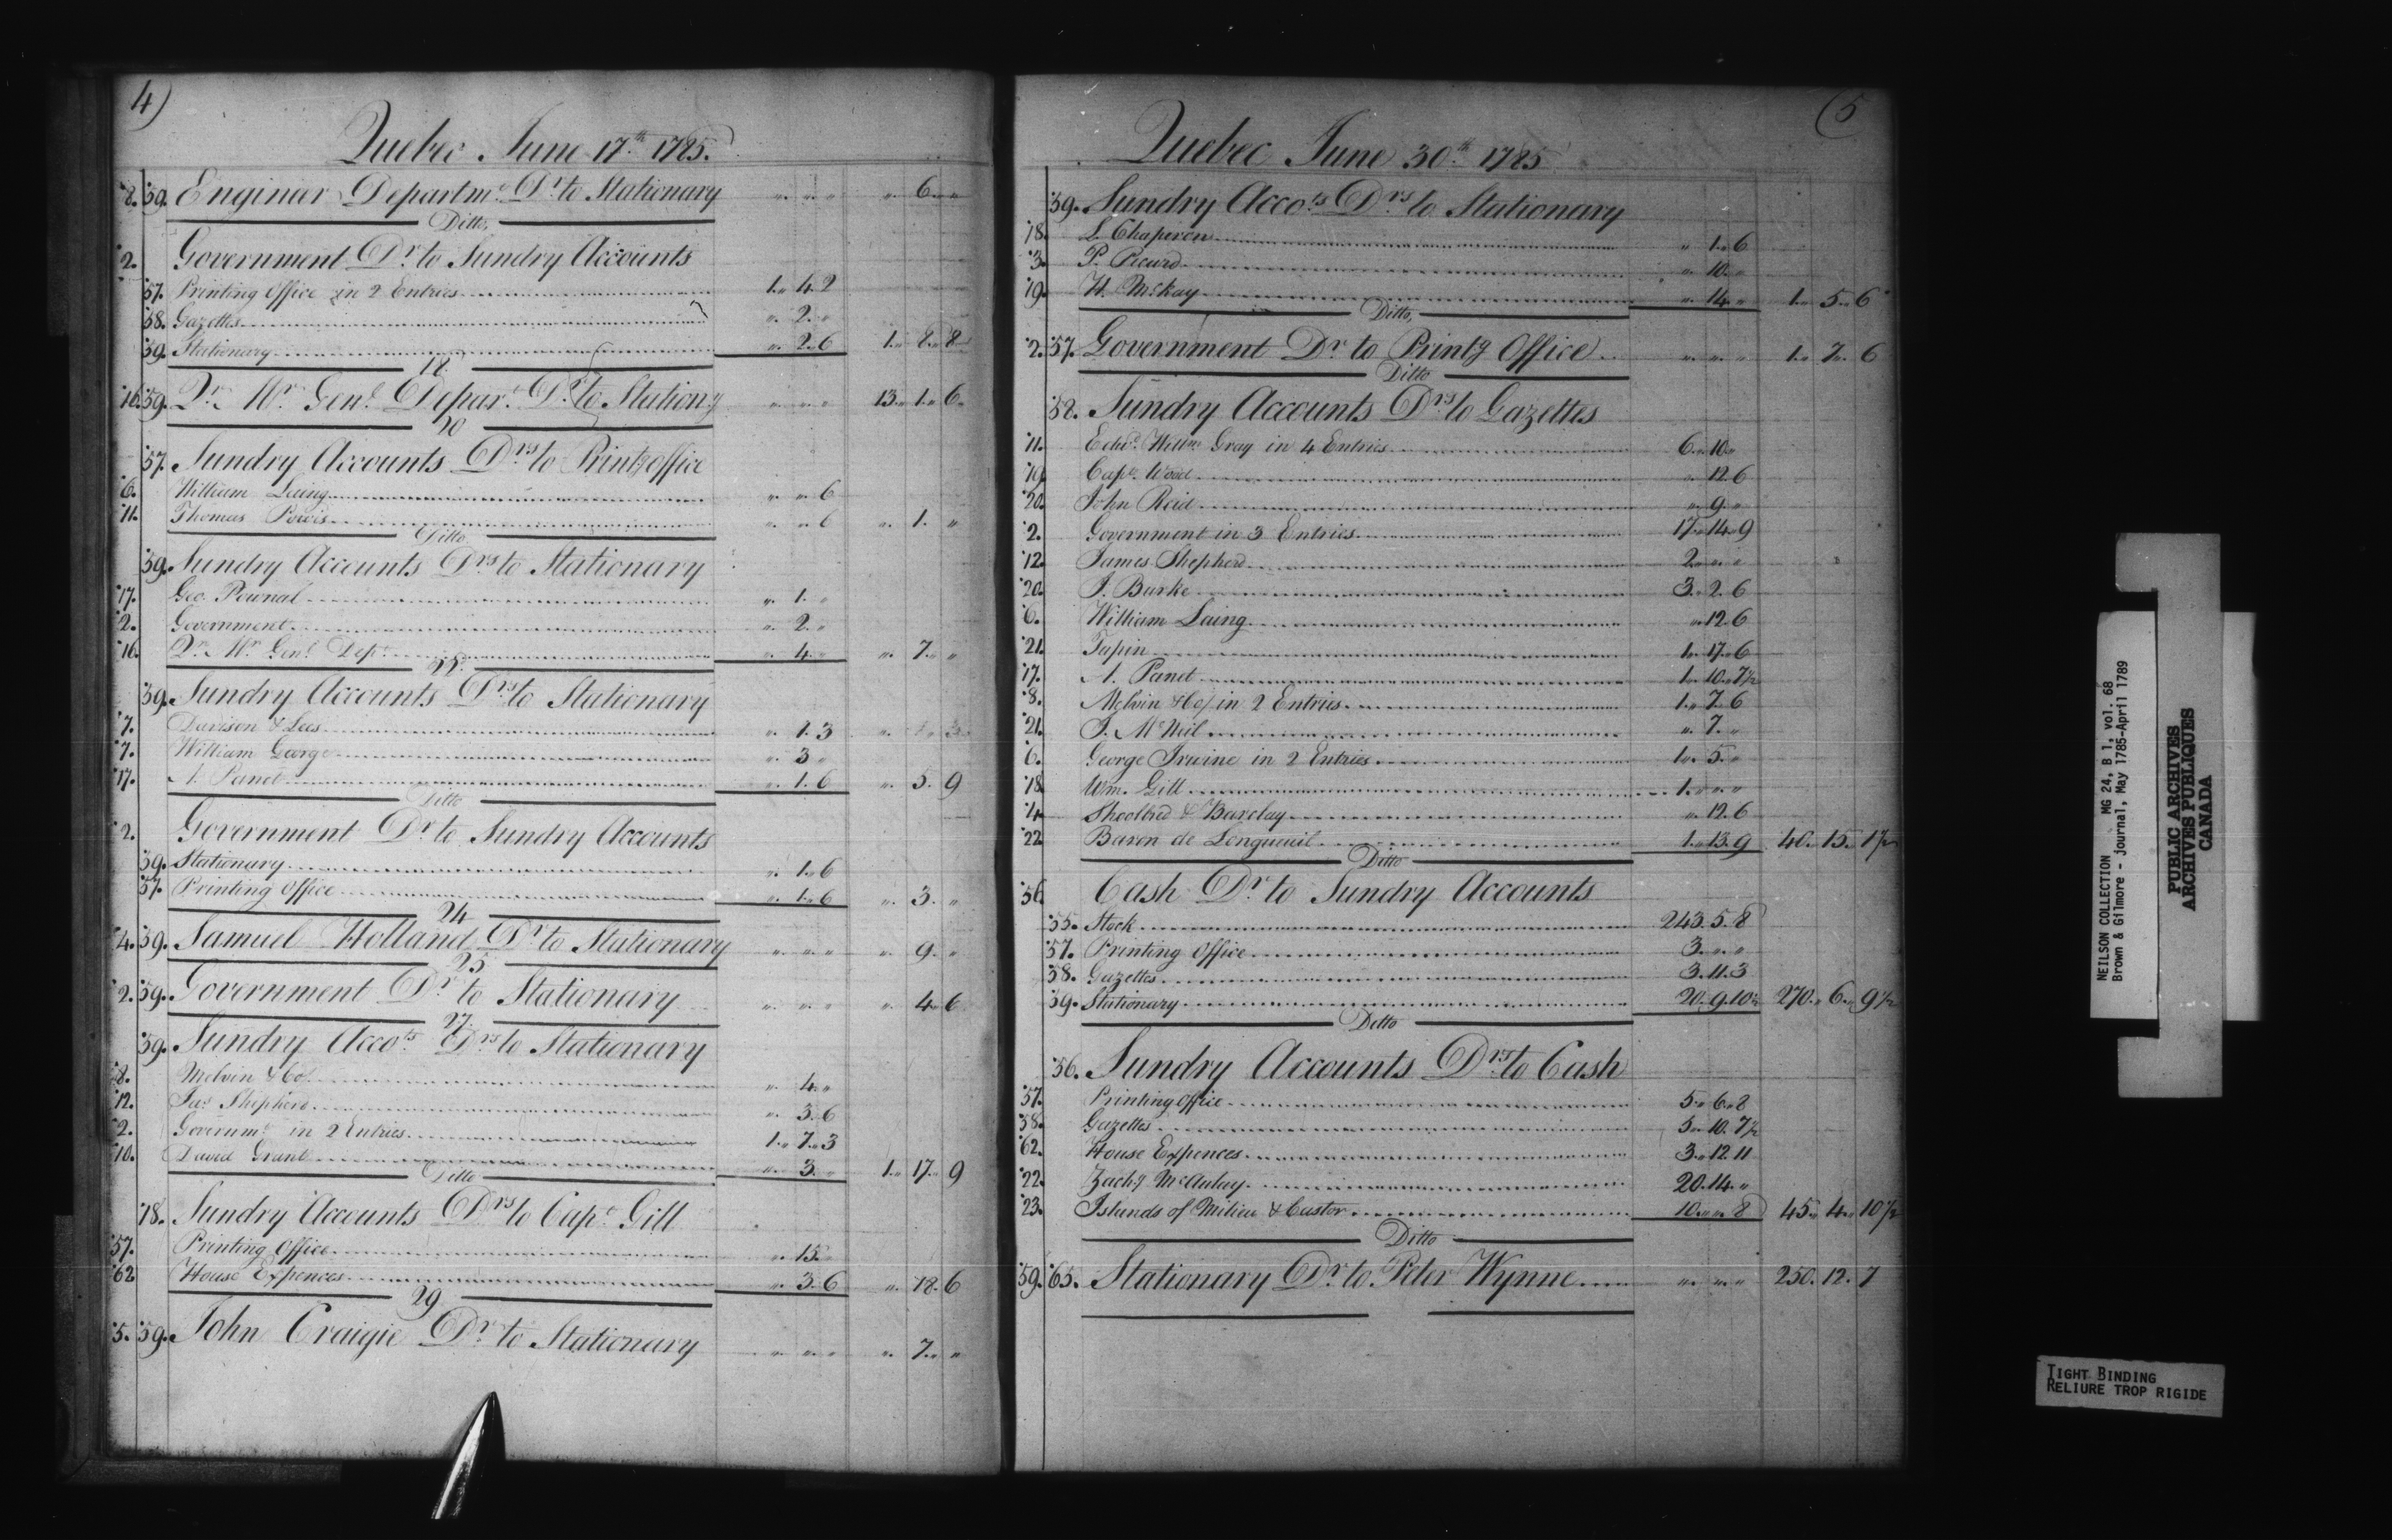 4)
Quebec June 17th 1785.
8. 59. Engineer Departmt Dr to Stationary " " " " 6. "
Ditto
2. Government Dr to Sundry Accounts
57. Printing Office in 2 Entries 1. 4. 2
58. Gazettes " 2. "
59. Stationary " 2. 6 1. 8. 8
18
16. 59. Qr. Mr. Genl Depart Dr to Stationy " " " 13. 1. 6
20
57. Sundry Accounts Drs to Printg office
6. William Laing " " 6
11. Thomas Powis " " 6 " 1. "
Ditto
59. Sundry Accounts Drs to Stationary
17. Geo. Pownal " 1. "
2. Government " 2. "
16. Qr. Mr. Genl Dept " 4. " " 7. "
22
59. Sundry Accounts Drs to Stationary
7. Davison & Lees " 1. 3
7. William George " 3 "
17. A. Panet " 1. 6 " 5. 9
Ditto
2. Government Dr to Sundry Accounts
59. Stationary " 1. 6
57. Printing Office " 1. 6 " 3. "
24
4. 59. Samuel Holland Dr to Stationary " " " " 9. "
25
2. 59. Government Dr to Stationary " " " " 4. 6
27
59. Sundry Accots Drs to Stationary
8. Melvin & Co " 4. "
12. Jas Shepherd " 3. 6
2. Governmt in 2 Entries 1. 7. 3
10. David Grant " 3. " 1. 17. 9
Ditto
18. Sundry Accounts Drs to Capt Gill
57. Printing Office " 15. "
62 House Expences " 3. 6 " 18. 6
29
5. 59. John Craigie Dr to Stationary " " " " 7. "
(5
Quebec June 30th 1785
59. Sundry Accots Drs to Stationary
18. L. Chaperon " 1. 6
3. P. Picard " 10. "
19. H. McKay " 14. " 1. 5. 6
Ditto
2. 57. Government Dr to Printg Office " " " 1. 7. 6
Ditto
58. Sundry Accounts Drs to Gazettes
11. Edwd Willm Gray in 4 Entries 6. 10. "
19. Capt Wood " 12. 6
20. John Reid " 9. "
2. Government in 3 Entries 17. 14. 9
12. James Shepherd 2. " "
20. J. Burke 3. 2. 6
6. William Laing " 12. 6
21. Tapin 1. 17. 6
17. A. Panet 1. 10. 7½
8. Melvin & Co / in 2 Entries 1. 7. 6
21. J. McNeil " 7. "
6. George Irwine in 2 Entries 1. 5. "
18 Wm. Gill 1. " "
4. Shoolbred & Barclay " 12. 6
22 Baron de Longueuil 1. 13. 9 40. 15. 1½
Ditto
56. Cash Dr to Sundry Accounts
55. Stock 243. 5. 8
57. Printing Office 3. " "
58. Gazettes 3. 11. 3
59. Stationary 20. 9. 10½ 270. 6. 9½
Ditto
56. Sundry Accounts Drs to Cash
57. Printing Office 5. 6. 8
58. Gazettes 5. 10. 7½
62. House Expences 3. 12. 11
22. Zachy McAulay 20. 14. "
23. Islands of Milieu & Castor 10. " 8 45. 4. 10½
Ditto
59. 65. Stationary Dr to Peter Wynne " " " 250. 12. 7
NEILSON COLLECTION MG 24, B 1, vol. 68
Brown & Gilmore - Journal, May 1785-April 1789
PUBLIC ARCHIVES
ARCHIVES PUBLIQUES
CANADA
TIGHT BINDING
RELIURE TROP RIGIDE